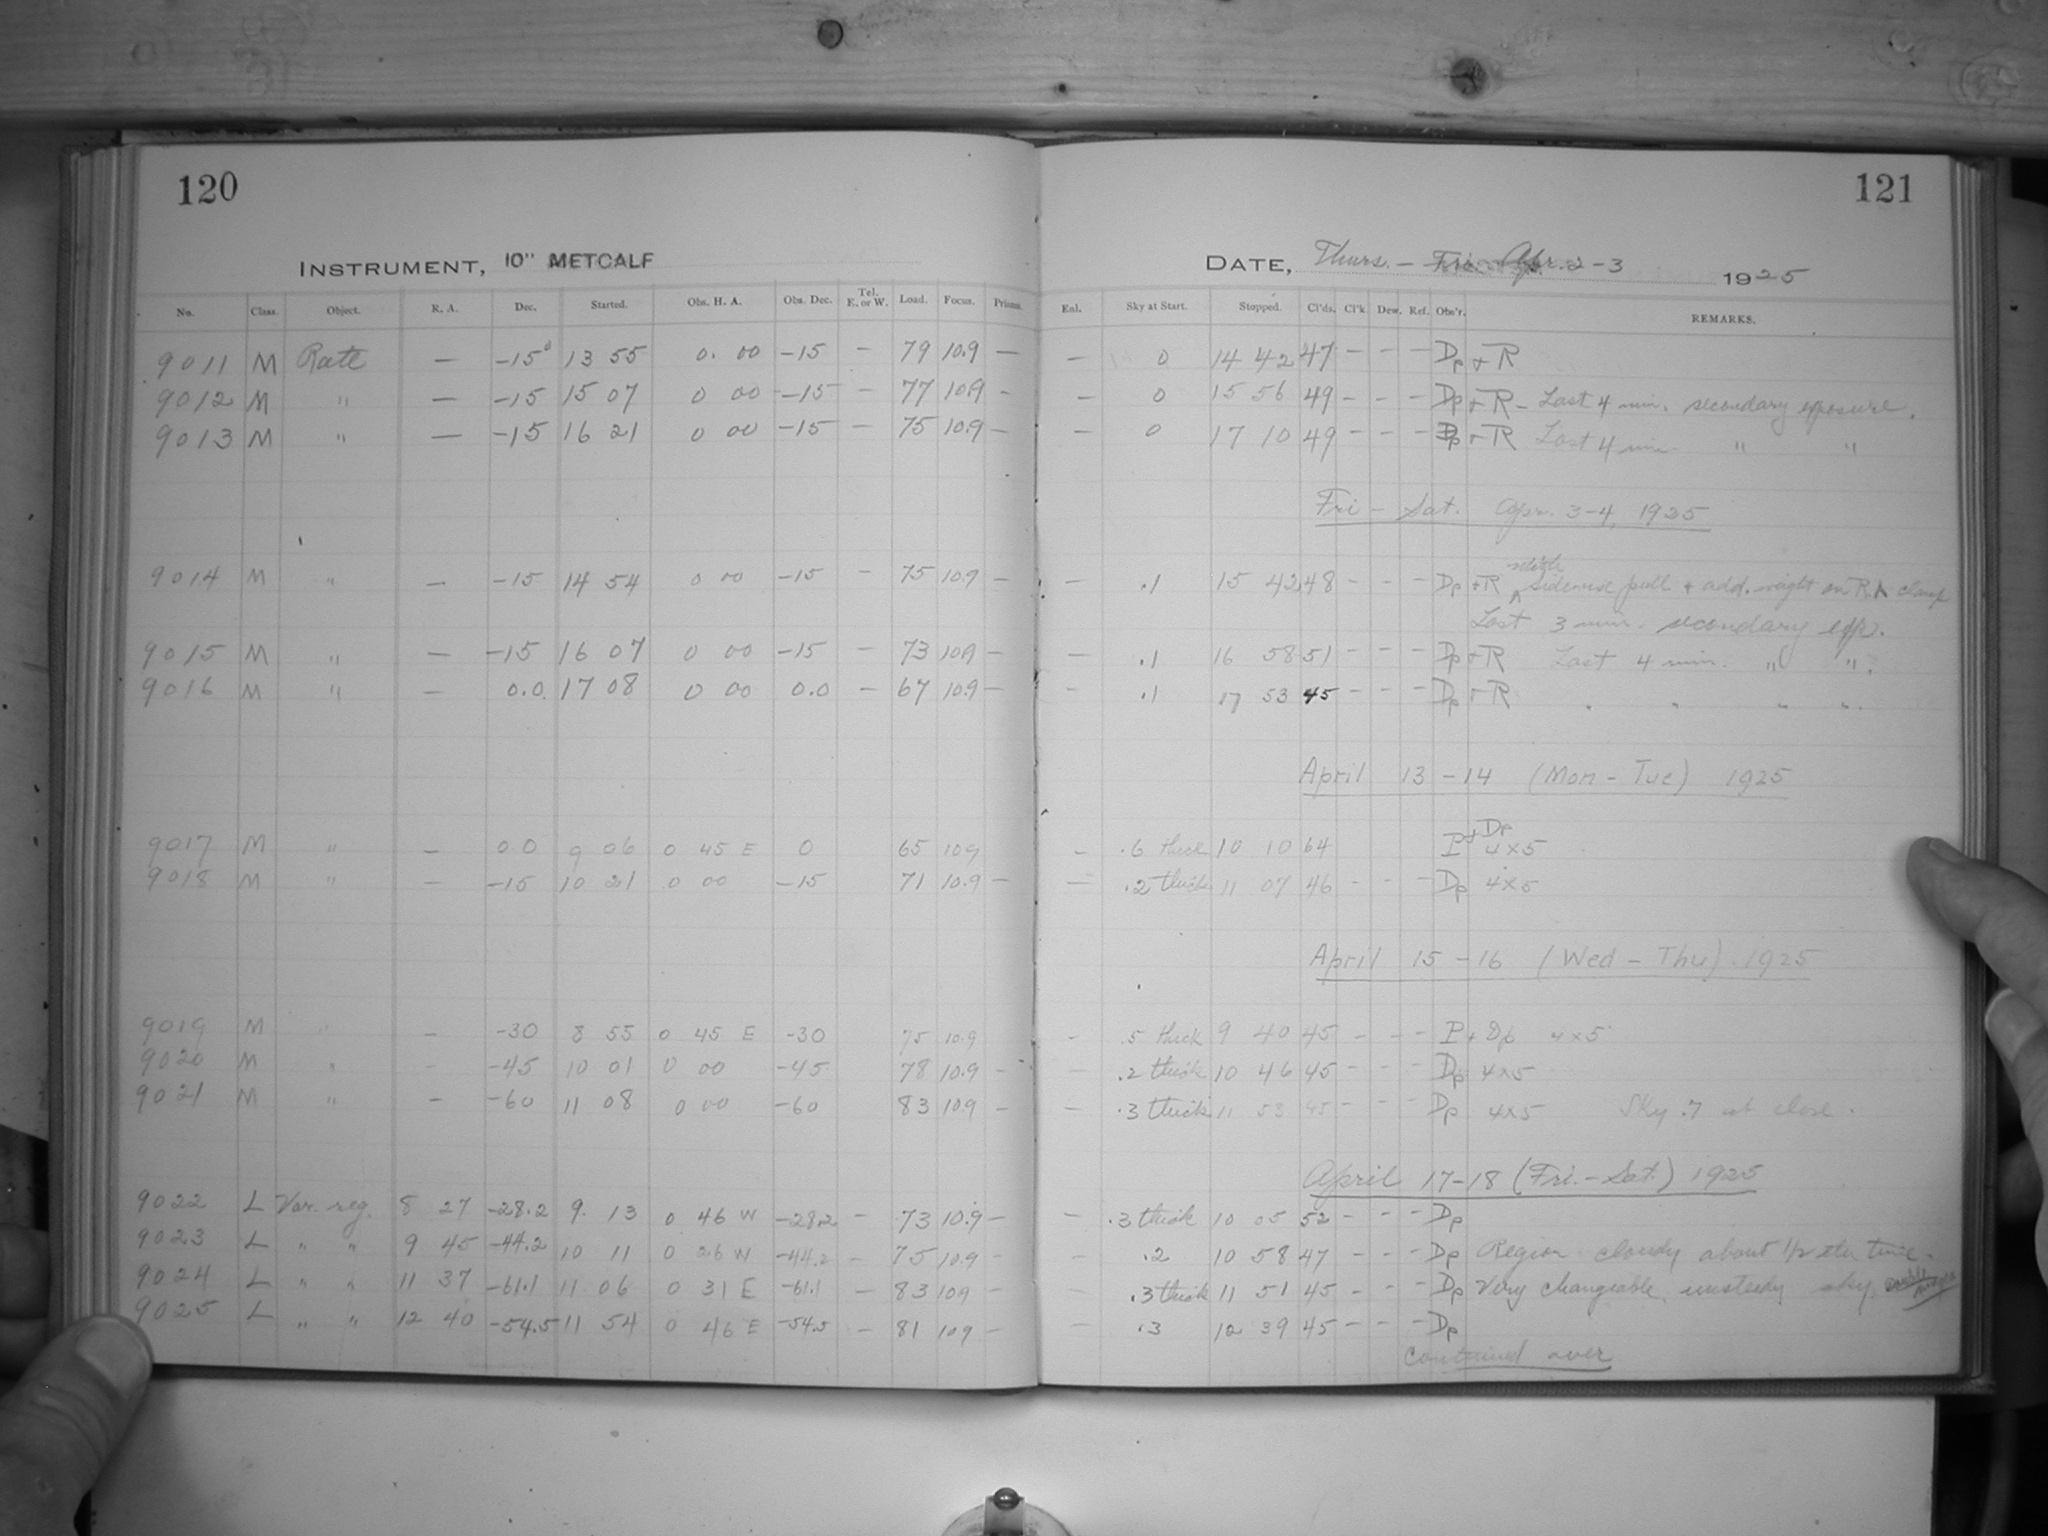 120
121
INSTRUMENT, 10" METCALF
DATE, Thurs. - Fri. Apr. 2-3 1925
No. Class. Object. R. A. Dec. Started. Obs. H. A. Obs. Dec. Tel. E. or W. Load. Focus. Prisms. Enl. Sky at Start. Stopped. Cl'ds. Cl'k. Dew. Ref. Obs'r. REMARKS.
9011 M Rate — -15° 13 55 0. 00 -15 - 79 10.9 — — 0 14 42 47 - - - Dp + R
9012 M " — -15 15 07 0 00 -15 - 77 10.9 - - 0 15 56 49 - - - Dp + R - Last 4 min. secondary exposure.
9013 M " — -15 16 21 0 00 -15 - 75 10.9 - - 0 17 10 49 - - - Dp + R Last 4 min. " "
Fri - Sat. Apr. 3-4, 1925
9014 M " - -15 14 54 0 00 -15 - 75 10.9 - - .1 15 42 48 - - - Dp + R sidewise pull + add. weight on R.A. clamp
Last 3 min. secondary exp.
9015 M " - -15 16 07 0 00 -15 - 73 10.9 - - .1 16 58 51 - - - Dp + R Last 4 min. " ".
9016 M " - 0.0. 17 08 0 00 0.0 - 67 10.9 - - .1 17 53 45 - - - Dp + R " " " ".
April 13-14 (Mon-Tue) 1925
9017 M " - 0 0 9 06 0 45 E 0 65 10.9 - .6 thick 10 10 64 P + Dp 4x5
9018 M " - -15 10 21 0 00 -15 71 10.9 - - .2 thick 11 07 46 - - - Dp 4x5
April 15-16 (Wed-Thu). 1925
9019 M " - -30 8 55 0 45 E -30 75 10.9 - .5 thick 9 40 45 - - - P + Dp 4x5
9020 M " - -45 10 01 0 00 -45 78 10.9 - - .2 thick 10 46 45 - - - Dp 4x5
9021 M " - -60 11 08 0 00 -60 83 10.9 - - .3 thick 11 53 45 - - - Dp 4x5 Sky .7 at close.
April 17-18 (Fri.-Sat.) 1925
9022 L Var. reg. 8 27 -28.2 9. 13 0 46 W -28.2 - 73 10.9 - - .3 thick 10 05 52 - - - Dp
9023 L " " 9 45 -44.2 10 11 0 26 W -44.2 - 75 10.9 - - .2 10 58 47 - - - Dp Region cloudy about 1/2 the time.
9024 L " " 11 37 -61.1 11 06 0 31 E -61.1 - 83 10.9 - - .3 thick 11 51 45 - - - Dp Very changeable, unsteady sky.
9025 L " " 12 40 -54.5 11 54 0 46 E -54.5 - 81 10.9 - - .3 12 39 45 - - - Dp
continued over